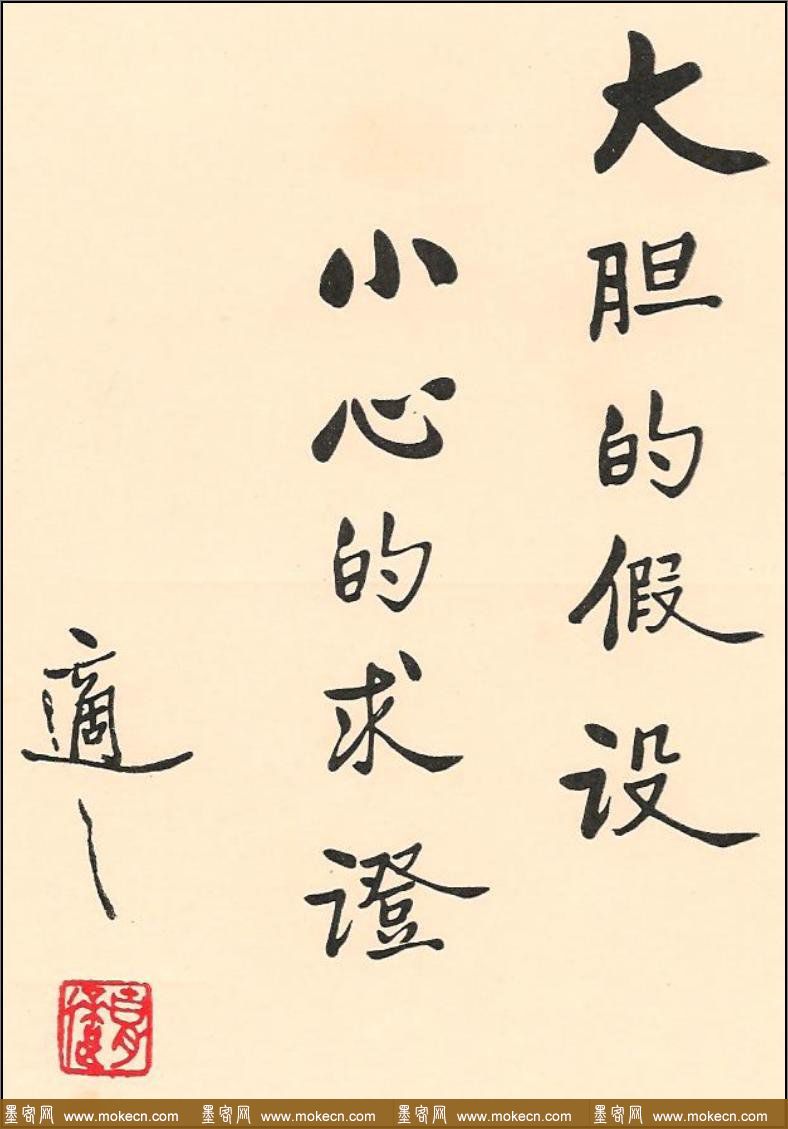 大胆的假设
小心的求證
適之
胡適
墨客网 www.mokecn.com 墨客网 www.mokecn.com 墨客网 www.mokecn.com 墨客网 www.mokecn.com